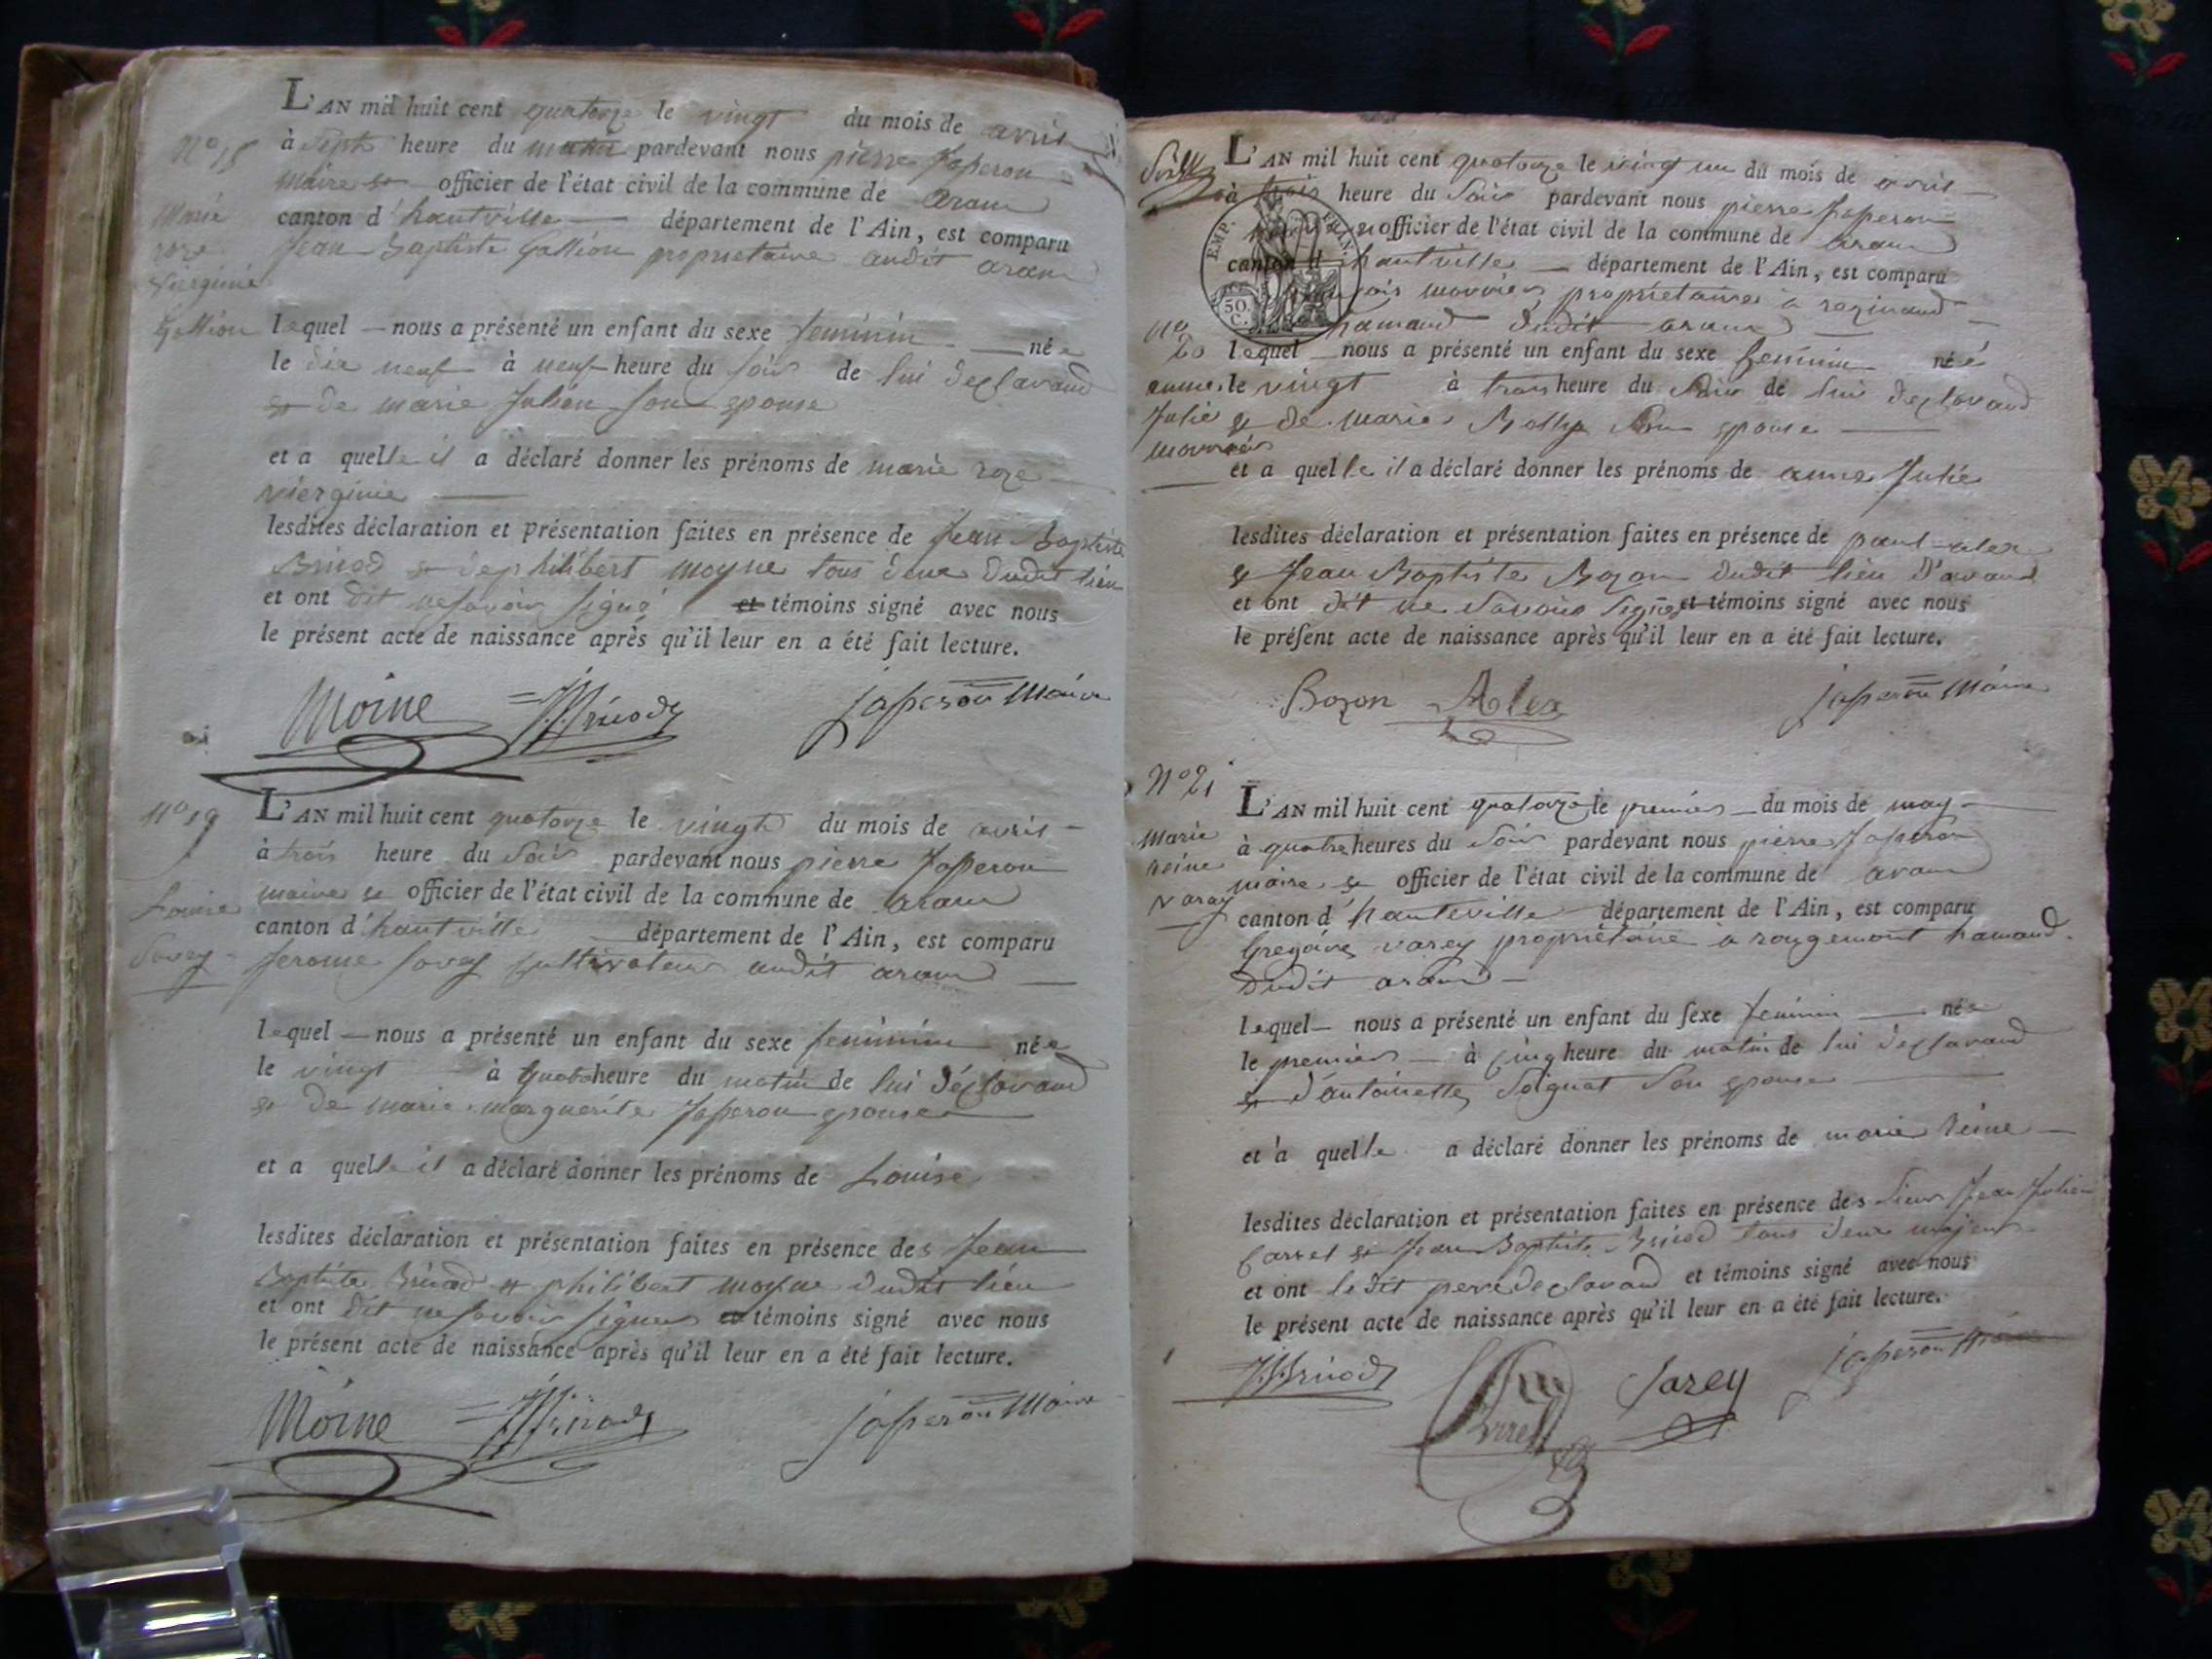 L'AN mil huit cent quatorze le vingt du mois de avril
N° 18
à sept heure du matin pardevant nous pierre Japeron
maire et officier de l'état civil de la commune de aran
Marie
canton d'hautville département de l'Ain, est comparu
roze
Jean Baptiste Gallion proprietaire audit aran
Viergínie
Gallion
lequel nous a présenté un enfant du sexe feminin née
le dix neuf à neuf heure du soir de lui declarand
et de marie Julien son epouse
et a quelle il a déclaré donner les prénoms de marie roze
viergine
lesdites déclaration et présentation faites en présence de Jean Baptiste
Brinod et de philibert moyne tous deux dudit lieu
et ont dit ne savoir signé et témoins signé avec nous
le présent acte de naissance après qu'il leur en a été fait lecture.
Moine JBBrinod japeron Maire
N° 19
L'AN mil huit cent quatorze le vingt du mois de avril
à trois heure du soir pardevant nous pierre Japeron
maire et officier de l'état civil de la commune de aran
Louise
canton d'hautville département de l'Ain, est comparu
Savey
Jerome Savey cultivateur audit aran
lequel nous a présenté un enfant du sexe feminin née
le vingt à quatre heure du matin de lui déclarand
et de marie marguerite Japeron epouse
et a quelle il a déclaré donner les prénoms de Louise
lesdites déclaration et présentation faites en présence des Jean
Baptiste Brinod et philibert moyne dudit lieu
et ont dit ne savoir signer et témoins signé avec nous
le présent acte de naissance après qu'il leur en a été fait lecture.
Moine JBBrinod japeron Maire
L'AN mil huit cent quatorze le vingt un du mois de avril
à trois heure du soir pardevant nous pierre Japeron
officier de l'état civil de la commune de aran
EMP. FRAN.
50. C.
canton d'hautville département de l'Ain, est comparu
proprietaire à
hamaud dudit aran
N° 20
lequel nous a présenté un enfant du sexe feminin née
anne
le vingt à trois heure du soir de lui declarand
Julie
et de marie son epouse
et a quelle il a déclaré donner les prénoms de anne Julie
lesdites déclaration et présentation faites en présence de paul alex
et Jean Baptiste Bozon dudit lieu d'aran
et ont dit ne savoir signer et témoins signé avec nous
le présent acte de naissance après qu'il leur en a été fait lecture.
Bozon Alex japeron Maire
N° 21
L'AN mil huit cent quatorze le premier du mois de may
marie
à quatre heures du soir pardevant nous pierre Japeron
reine
maire et officier de l'état civil de la commune de aran
varay
canton d'hauteville département de l'Ain, est comparu
Gregoire varey proprietaire à rougemont hamaud
dudit aran
lequel nous a présenté un enfant du sexe feminin née
le premier à cinq heure du matin de lui declarand
et d'antoinette Soignat son epouse
et a quelle a déclaré donner les prénoms de marie reine
lesdites déclaration et présentation faites en présence des sieur Jean Julien
Carrel et Jean Baptiste Brinod tous deux majeur
et ont ledit pere declarand et témoins signé avec nous
le présent acte de naissance après qu'il leur en a été fait lecture.
JBBrinod Varey japeron Maire